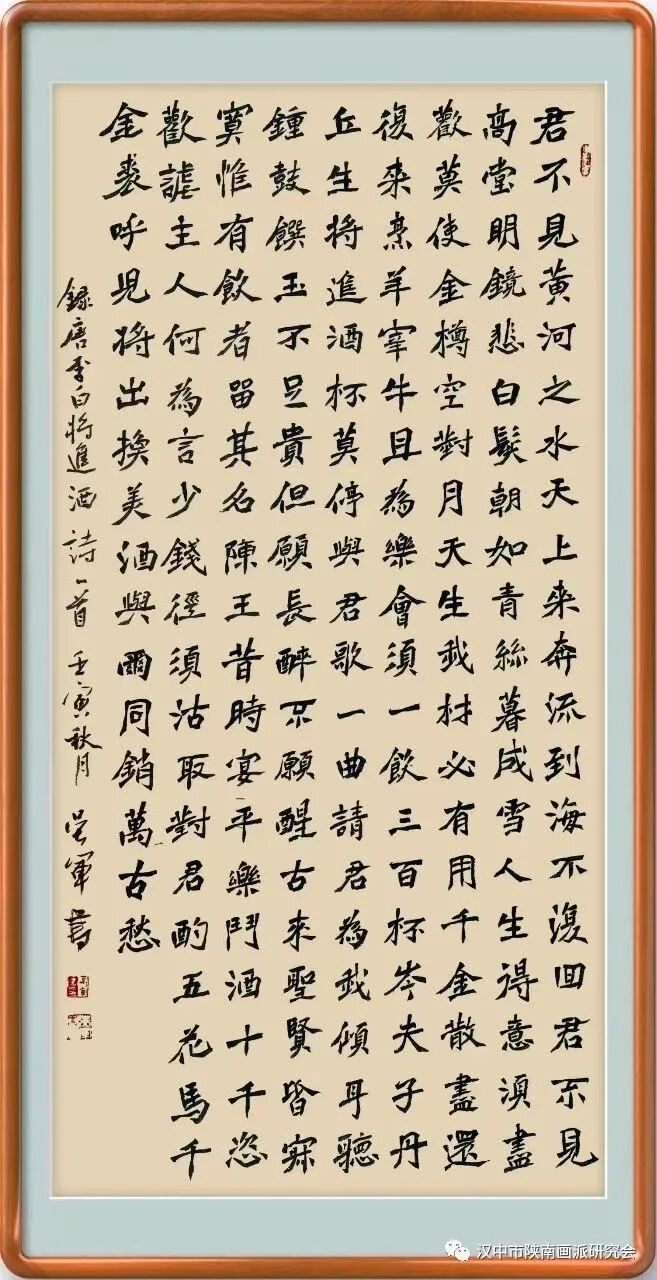 君不見黃河之水天上來奔流到海不復回君不見
高堂明鏡悲白髮朝如青絲暮成雪人生得意須盡
歡莫使金樽空對月天生我材必有用千金散盡還
復來烹羊宰牛且為樂會須一飲三百杯岑夫子丹
丘生將進酒杯莫停與君歌一曲請君為我傾耳聽
鍾鼓饌玉不足貴但願長醉不願醒古來聖賢皆寂
寞惟有飲者留其名陳王昔時宴平樂鬥酒十千恣
歡謔主人何為言少錢徑須沽取對君酌五花馬千
金裘呼兒將出換美酒與爾同銷萬古愁
錄唐李白將進酒詩一首 壬寅秋月 吳軍書
汉中市陕南画派研究会